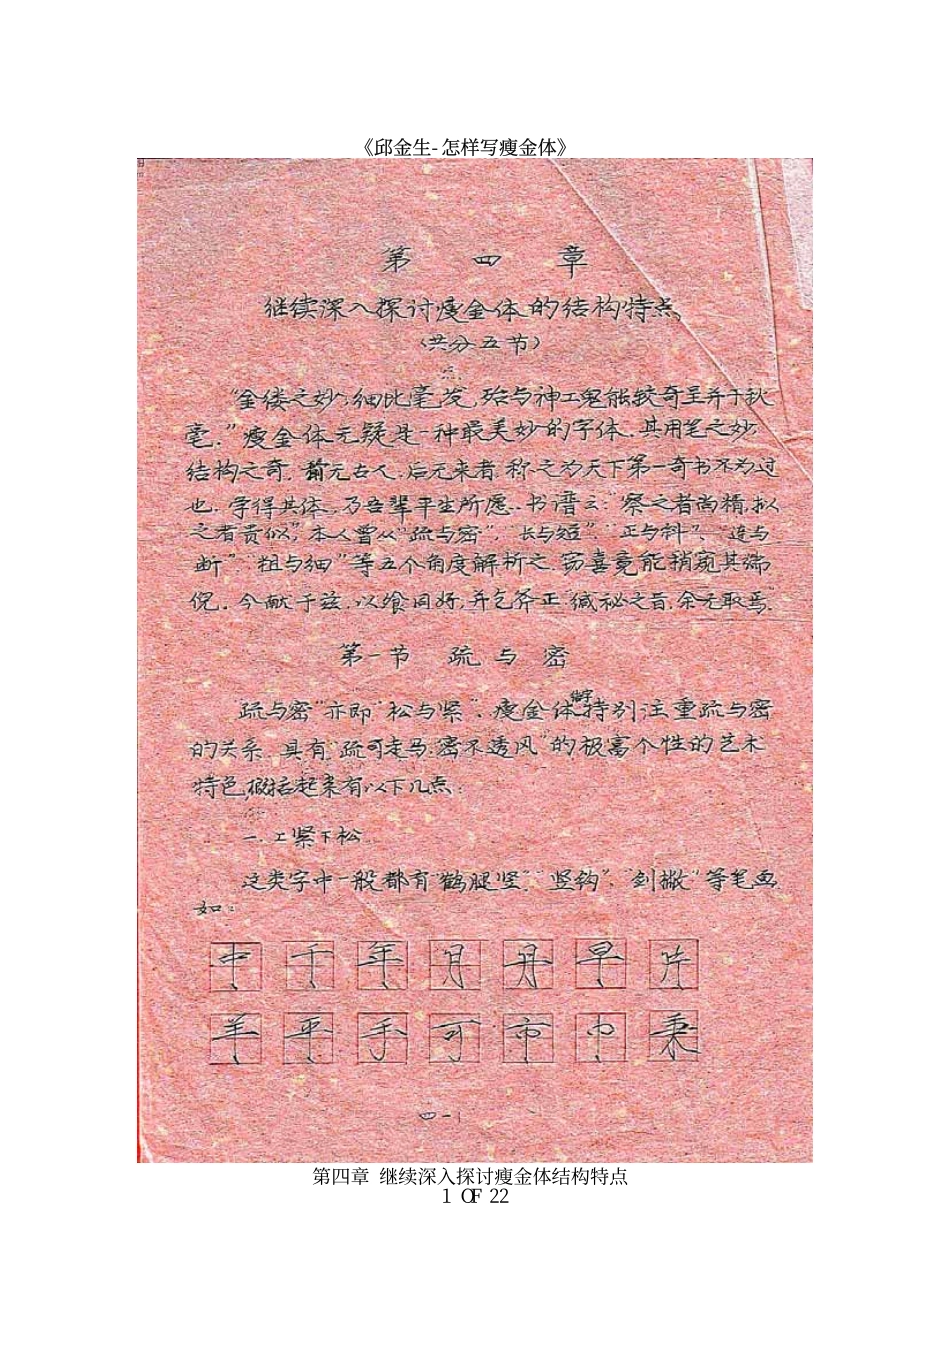 《邱金生-怎样写瘦金体》
第四章
继续深入探讨瘦金体的结构特点
（共分五节）
“金缕之妙，细比毫发，殆与神工鬼能较奇呈并于秋
毫。”瘦金体无疑是一种最美妙的字体.其用笔之妙
结构之奇.前无古人.后无来者.称之为天下第一奇书不为过
也.学得其体.乃吾辈平生所愿.书谱云：“察之者尚精，拟
之者贵似”，本人曾从“疏与密”，“长与短”，“正与斜”，“连与
断”，“粗与细”等五个角度解析之.窃喜竟能稍窥其端
倪.今献于兹.以飨同好，并乞斧正“缄秘之旨，余无取焉”.
第一节 疏与密
疏与密“亦即“松与紧”.瘦金体特别注重疏与密
的关系.具有“疏可走马.密不透风”的极富个性的艺术
特色，概括起来有以下几点：
一.上紧下松
这类字中一般都有“鹤腿竖”“竖钩”，“剑撇”等笔画
如：
中 千 年 月 丹 早 片
羊 平 手 可 市 巾 秉
四-1
第四章 继续深入探讨瘦金体结构特点
1 OF 22